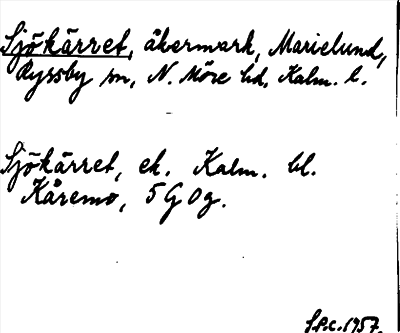 Sjökärret, åkermark, Marielund,
Ryssby sn, N. Möre hd, Kalm. l.
Sjökärret, ek. Kalm. bl.
Kåremo, 5 G 0 g.
S.P.C. 1957.